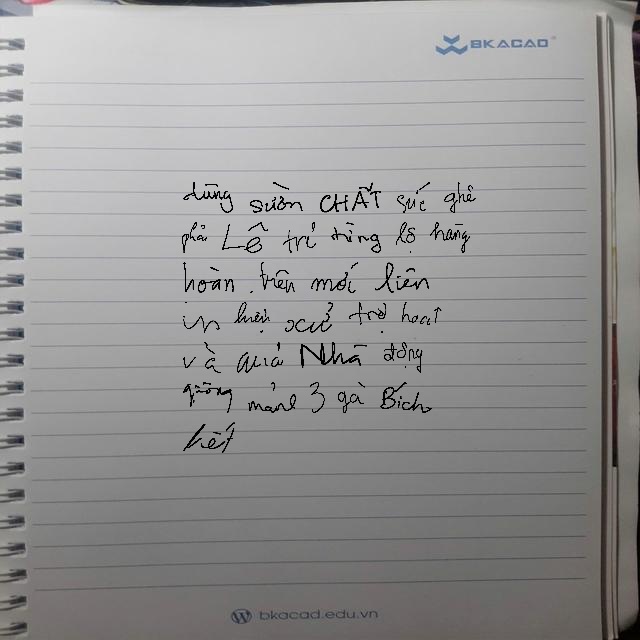 BKACAD
dũng sườn CHẤT sức ghê
phải Lê trí từng lộ hang
hoàn trên mới liên
in luận xử trợ hoạt
và quả Nhã động
giống mảnh 3 gà Bích
hết
bkacad.edu.vn